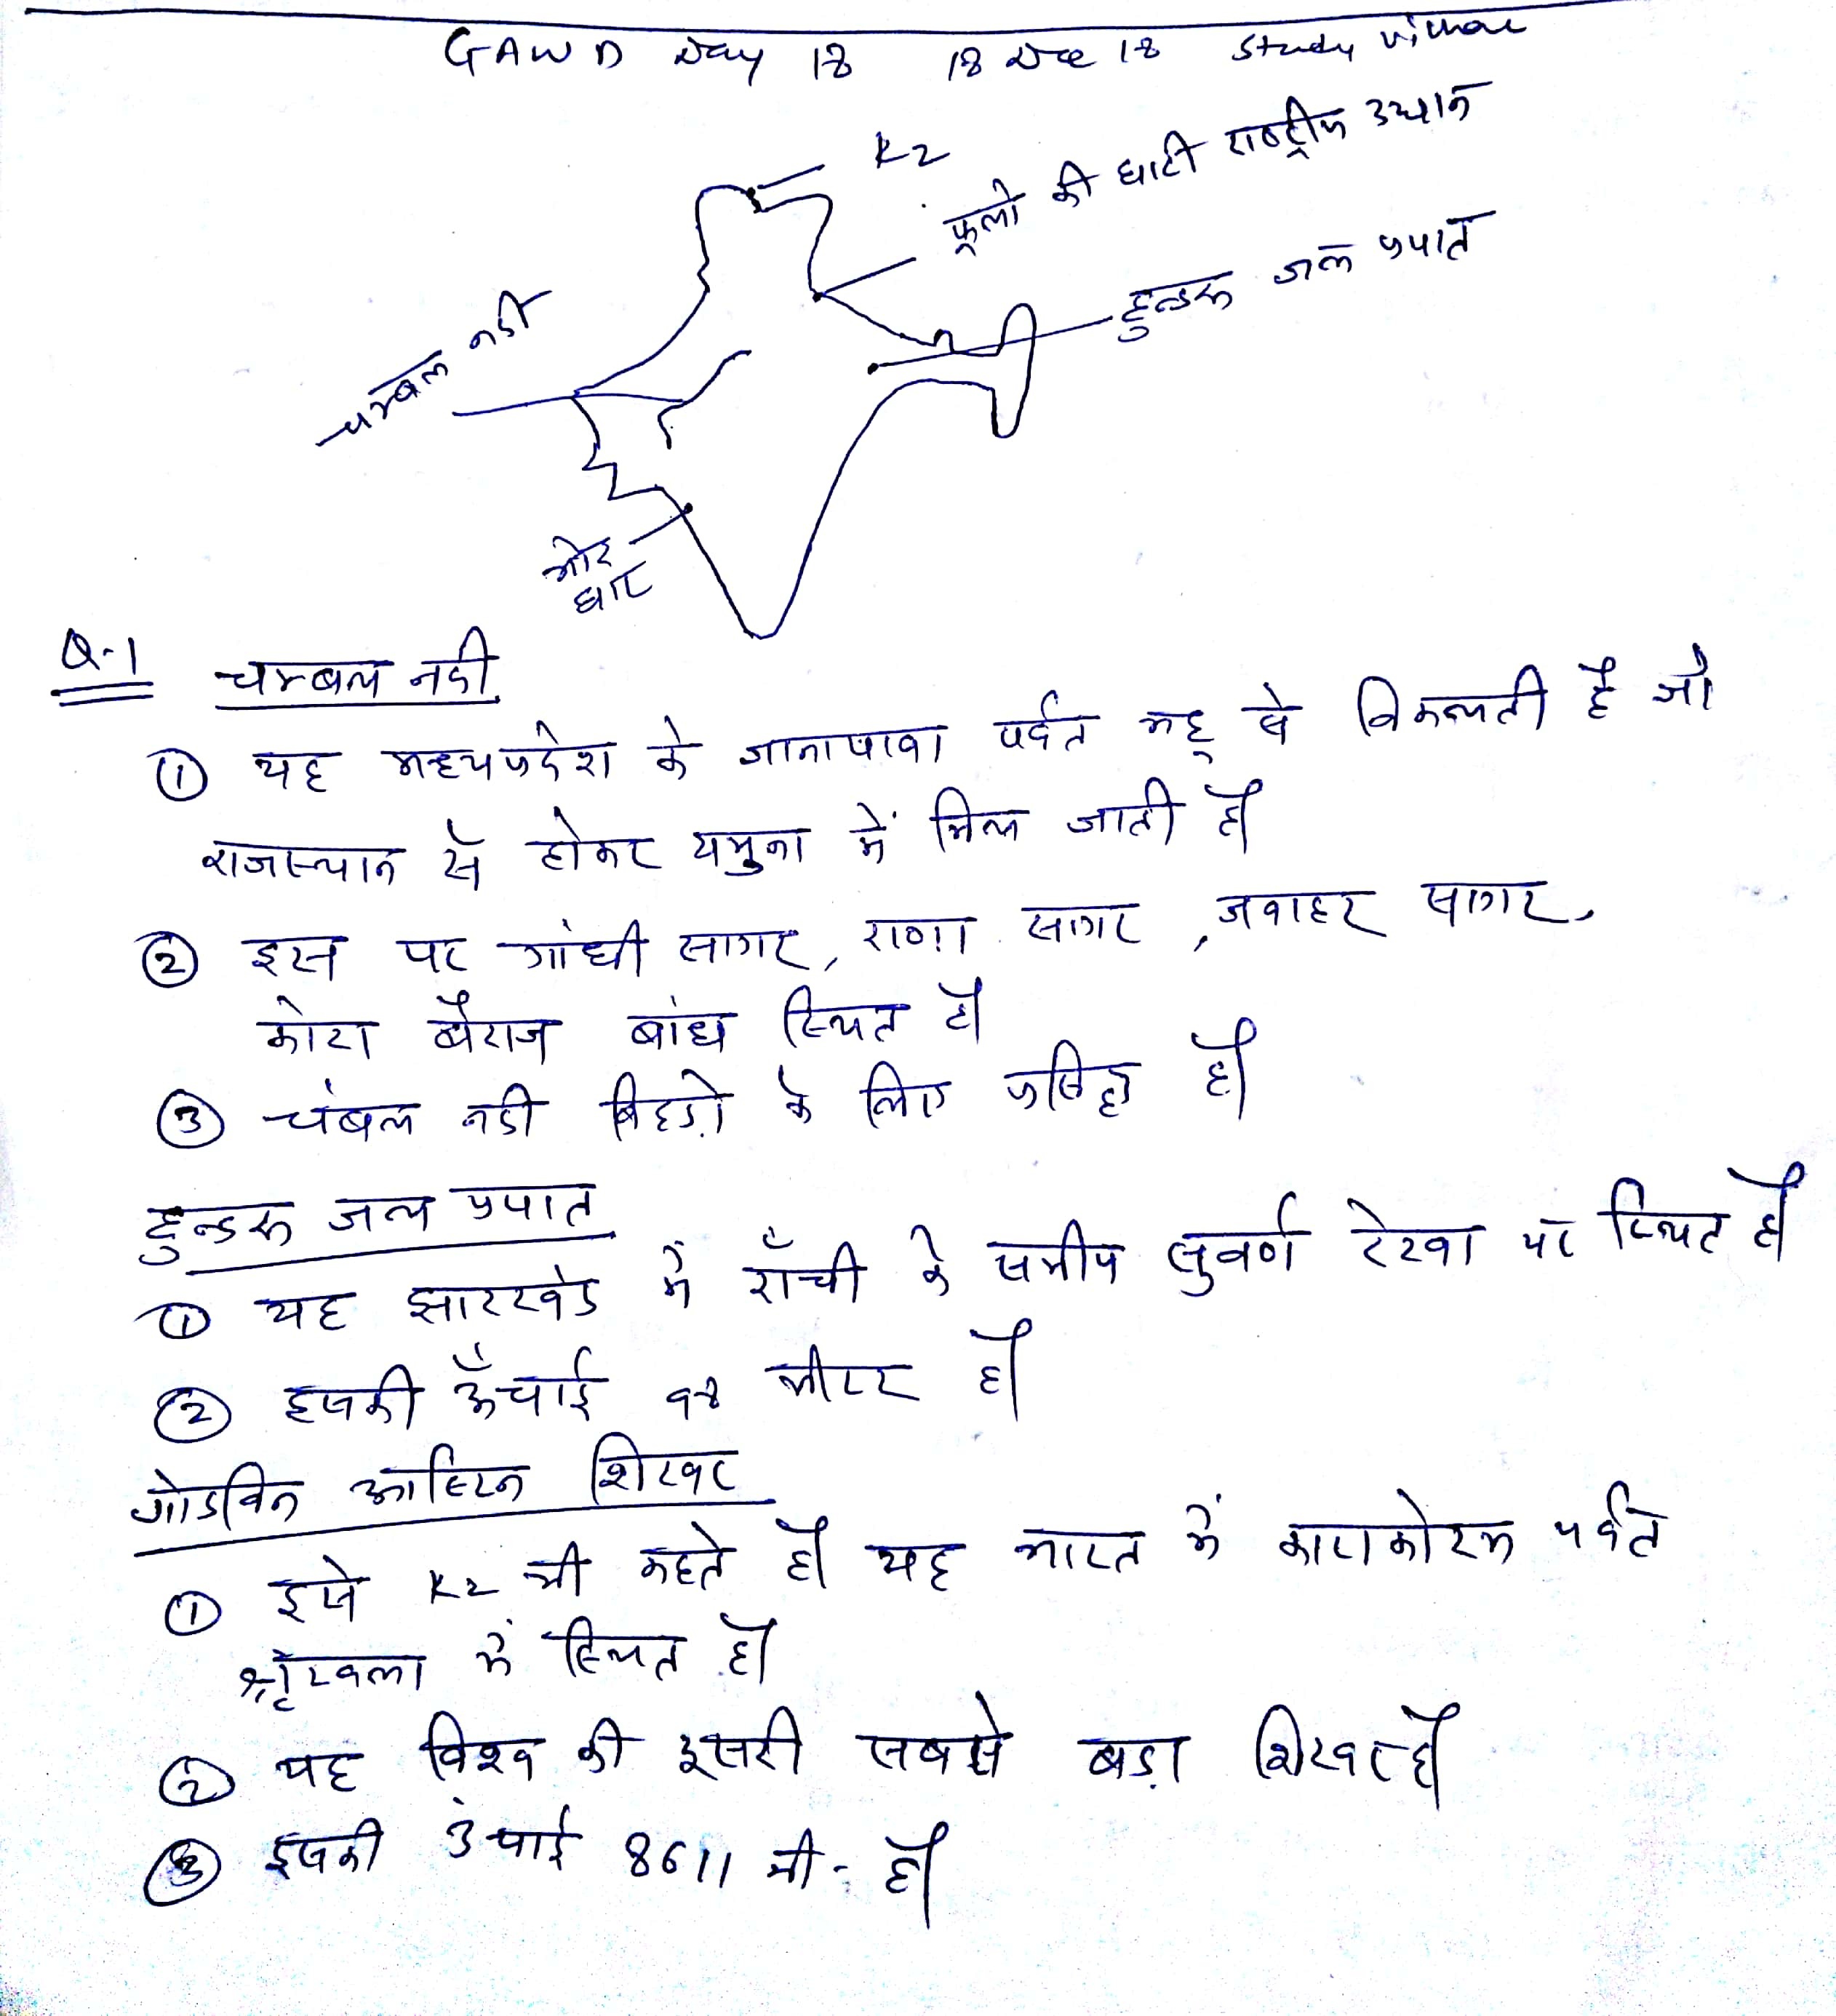 GAWD Day 18 18 Dec 18 Study Vihar
K2
फूलो की घाटी राष्ट्रीय उद्यान
हुन्डरू जल प्रपात
चम्बल नदी
भोर घाट
Q-1 चम्बल नदी
① यह मध्यप्रदेश के जानापावा पर्वत महू से निकलती है जो
राजस्थान से होकर यमुना में मिल जाती है।
② इस पर गांधी सागर, राणा सागर, जवाहर सागर,
कोटा बैराज बांध स्थित है।
③ चंबल नदी बिहड़ो के लिए प्रसिद्ध है।
हुन्डरू जल प्रपात
① यह झारखंड में राँची के समीप सुवर्ण रेखा पर स्थित है।
② इसकी ऊँचाई मीटर है।
गोडविन आस्टिन शिखर
① इसे K2 भी कहते है। यह भारत में काराकोरम पर्वत
श्रृंखला में स्थित है।
② यह विश्व की दूसरी सबसे बड़ा शिखर है।
③ इसकी उंचाई 8611 मी. है।